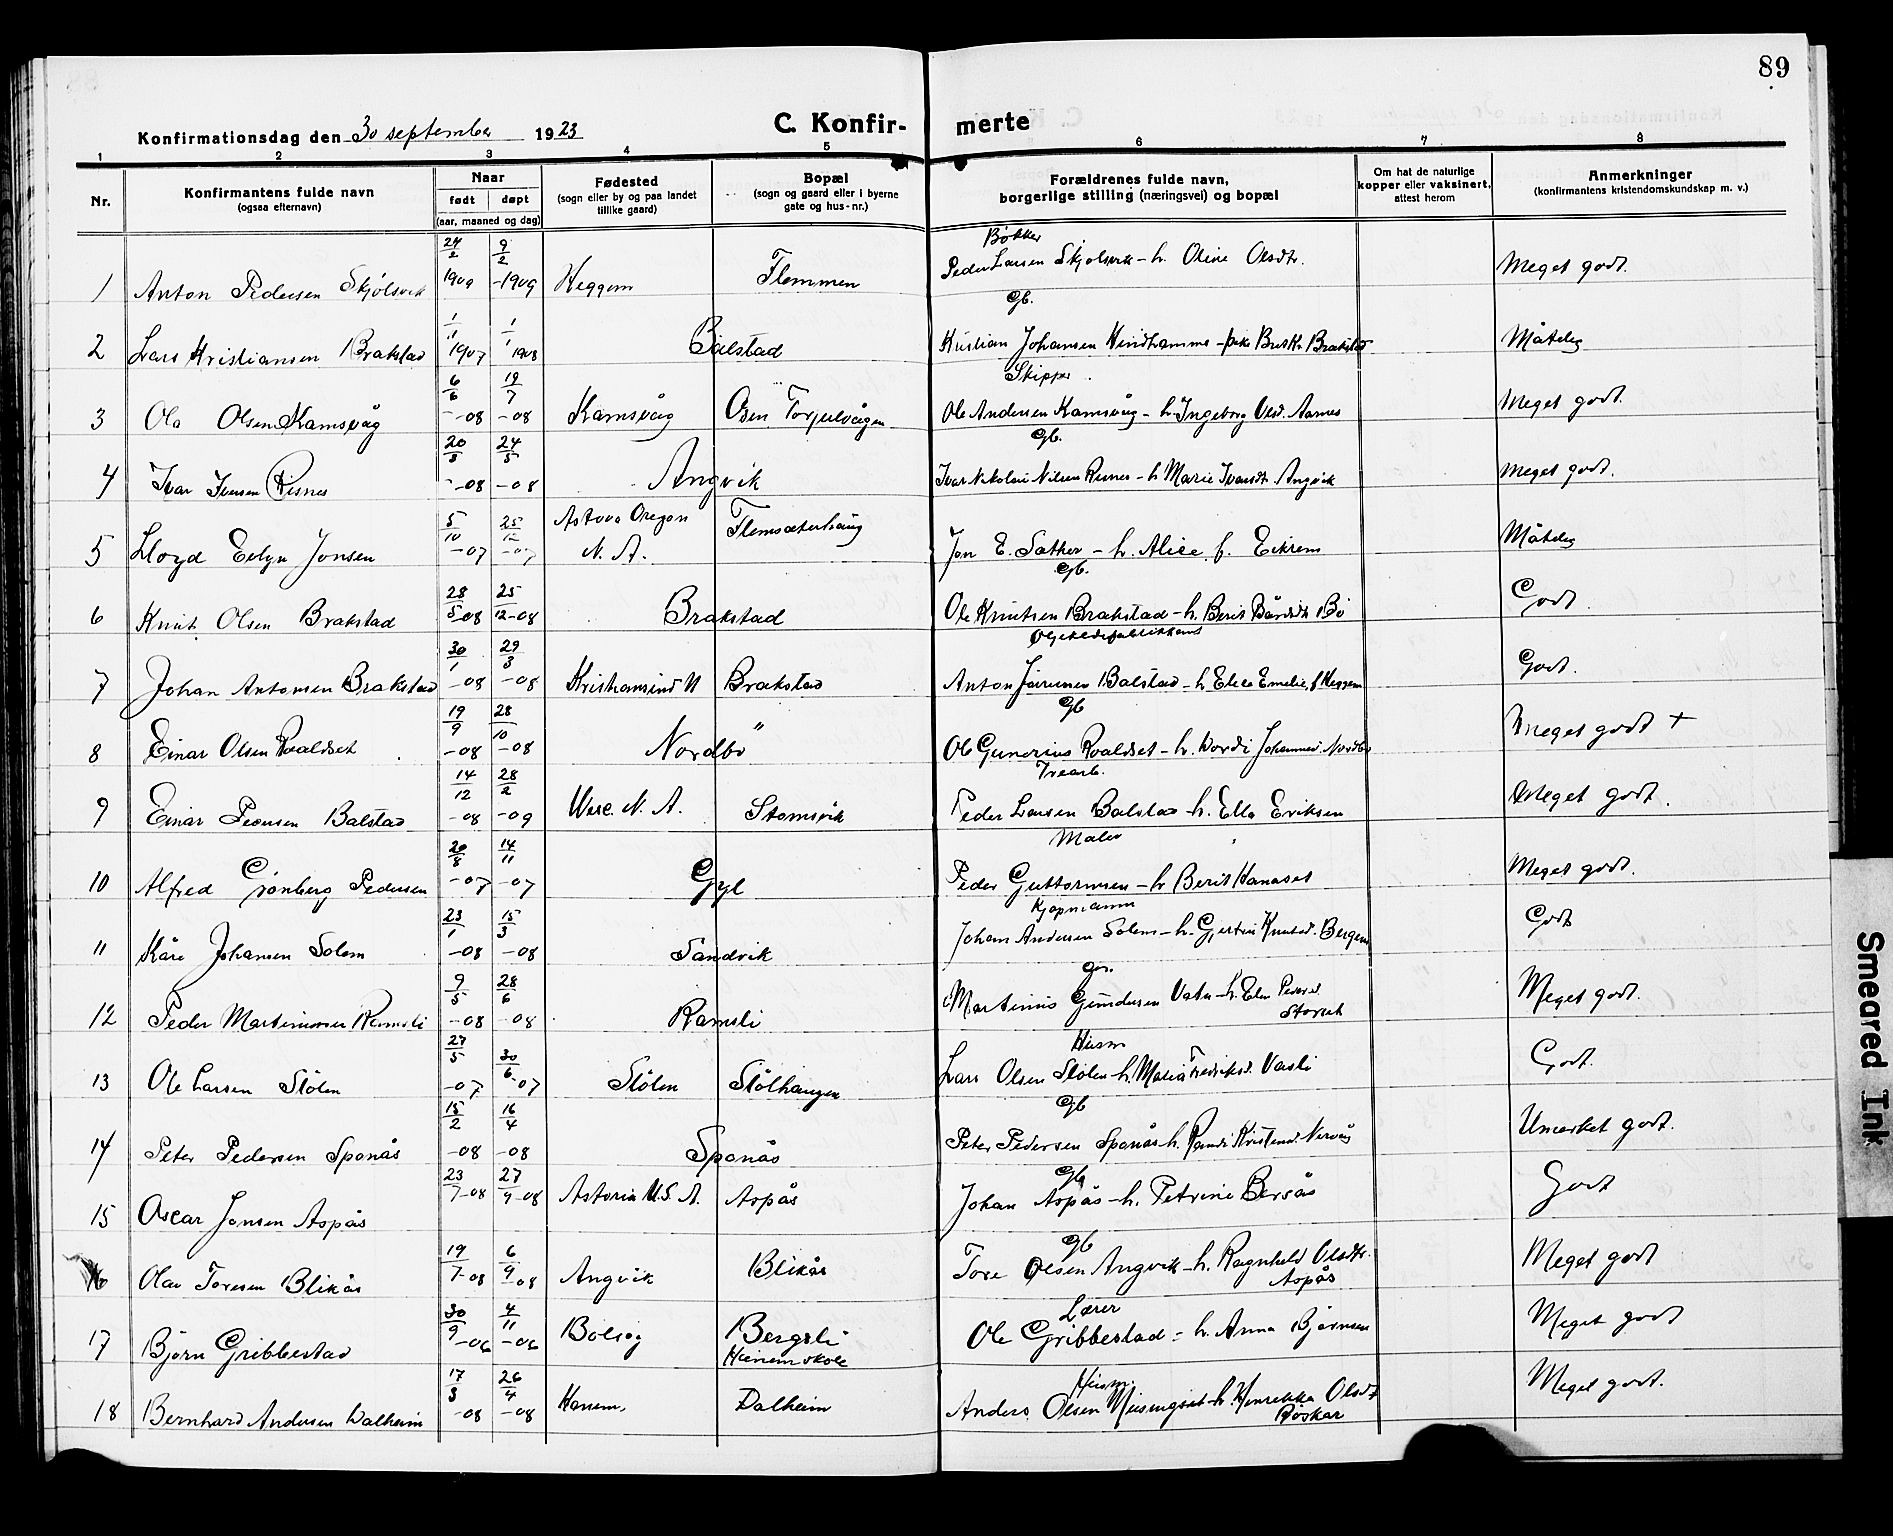 89
Konfirmationsdag den 30 september 1923 C. Konfir- merte
1 2 3 4 5 6 7 8
Nr. Konfirmantens fulde navn (ogsaa efternavn) Naar født døpt (aar, maaned og dag) Fødested (sogn eller by og paa landet tillike gaard) Bopæl (sogn og gaard eller i byerne gate og hus-nr.) Forældrenes fulde navn, borgerlige stilling (næringsvei) og bopæl Om hat de naturlige kopper eller vaksinert, attest herom Anmerkninger (konfirmantens kristendomskundskap m. v.)
1 Anton Pedersen Skjølsvik 24/2 1909 9/2 -1909 Heggem Flemmen Bøkker Peder Larsen Skjolsvik - h. Oline Olsdtr. Meget godt.
2 Lars Kristiansen Brakstad 1/11 1907 1/1 1908 Balstad Gb. Kristian Johansen - Brakstad Måtelig
3 Ola Olsen Kamsvåg 6/6 -08 19/7 -08 Kamsvåg Osen Torjulvågen Skipper Ole Andersen Kamsvåg - h. Ingeborg Olsd. Aarnes Meget godt.
4 Ivar Iversen Risnes 20/3 -08 24/5 -08 Angvik Gb. Ivar Nikolai Nilsen Risnes - h Marie Ivarsdt. Angvik Meget godt.
5 Lloyd Evlyn Jonsen 5/10 -07 25/12 -07 Astova Oregon N. A. Flemsæterhaug Jon E. Sæther - h. Alice f. Eikrem Måtelig
6 Knut Olsen Brakstad 28/5 -08 25/12 -08 Brakstad Gb. Ole Knutsen Brakstad - h. Berit Bårdsdt. Bø Godt.
7 Johan Antonsen Brakstad 30/1 -08 29/3 -08 Kristiansund N Brakstad Anton Balstad - h Elise Emelie, f Heggem Godt.
8 Einar Olsen Roaldset 19/9 -08 28/10 -08 Nordbø " Gb Ole Gunerius Roaldset - h. Johannesd. Nordbø Meget godt +
9 Einar Pedersen Balstad 14/12 -08 28/2 -09 Wisc. N. A. Stomsvik Trearb. Peder Larsen Balstad - h. Ella Eriksen Meget godt.
10 Alfred Grønberg Pedersen 20/8 -07 14/11 -07 Gyl Maler Peder Guttormsen - h Berit Hanaset Meget godt.
11 Kåre Johansen Solem 23/1 -08 15/3 -08 Sandvik Kjøpmann Johans Andersen Solem - h. Gjertine Knutsd. Bergem Godt
12 Peder Martinusen Ramsli 9/5 -08 28/6 -08 Ramsli Martinus Gundersen Vatn - h. Elen Pedersd. Storset Meget godt.
13 Ole Larsen Stölen 27/5 -07 30/6 -07 Stölen Stölhaugen Husm Lars Olsen Stölen - h. Maria Fredriksd. Vasli Godt.
14 Peter Pedersen Sponås 15/2 -08 16/4 -08 Sponås Gb Peter Pedersen Sponås - h. Randi Kristensd. Nervåg Umerket godt.
15 Oscar Jonsen Aspås 23/7 -08 27/9 -08 Astoria U.S.A. Aspås Gb Johan Aspås - h. Petrine Bersås Godt
16 Olav Toresen Blikås 19/7 -08 6/9 -08 Angvik Blikås Gb Tore Olsen Angvik - h. Ragnhild Olsdtr. Aspås Meget godt
17 Bjørn Gribbestad 30/9 -06 4/11 -06 Bolsøy Bergsli Heinem skole Lærer Ole Gribbestad - h. Anna Bjørnsen Meget godt
18 Bernhard Andersen Dalheim 17/3 -08 26/4 -08 Hanem, Dalheim Husm. Anders Olsen Meisingset - h. Henrikka Olsdt Röskar Meget godt.
Smeared Ink